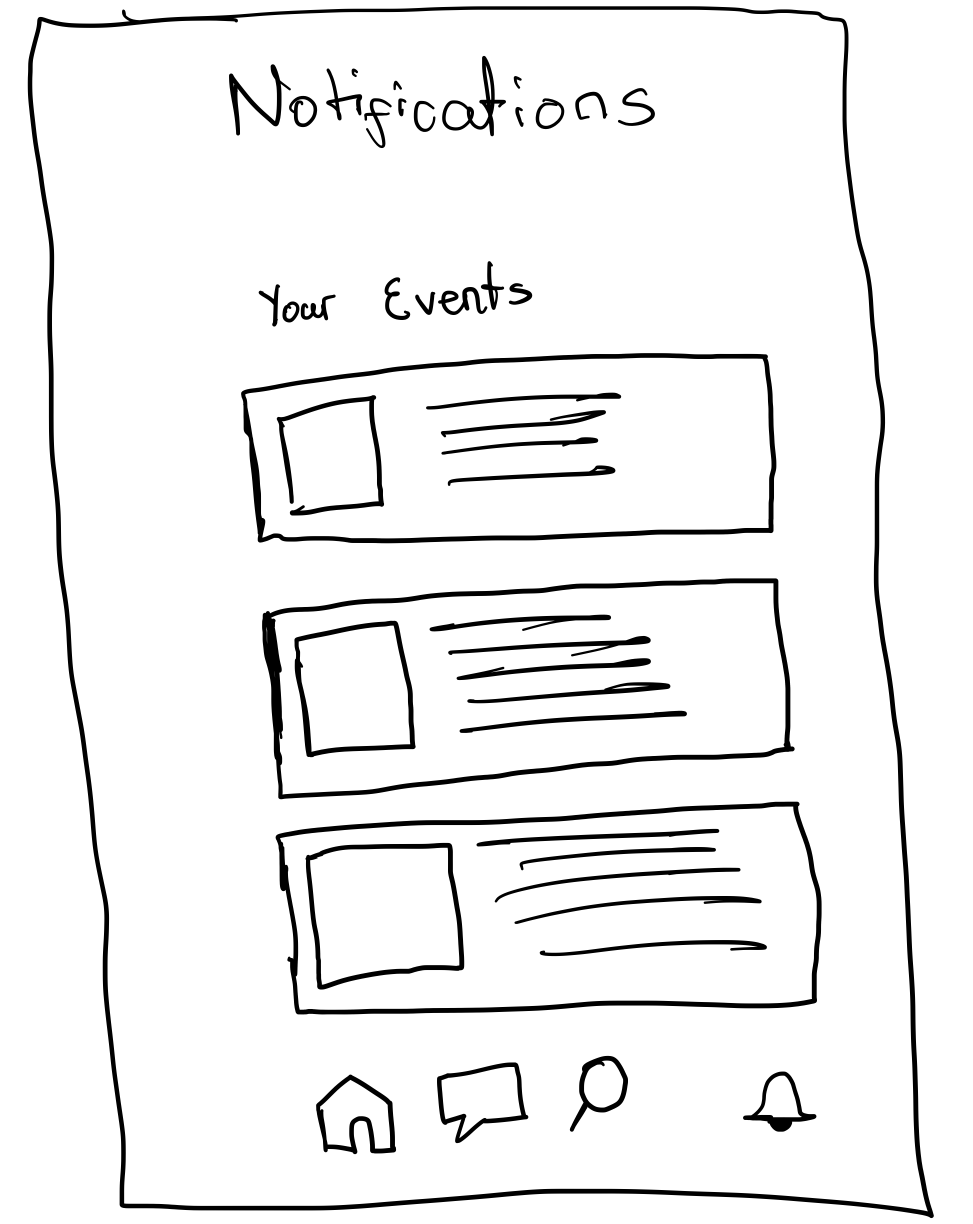 Notifications
Your Events